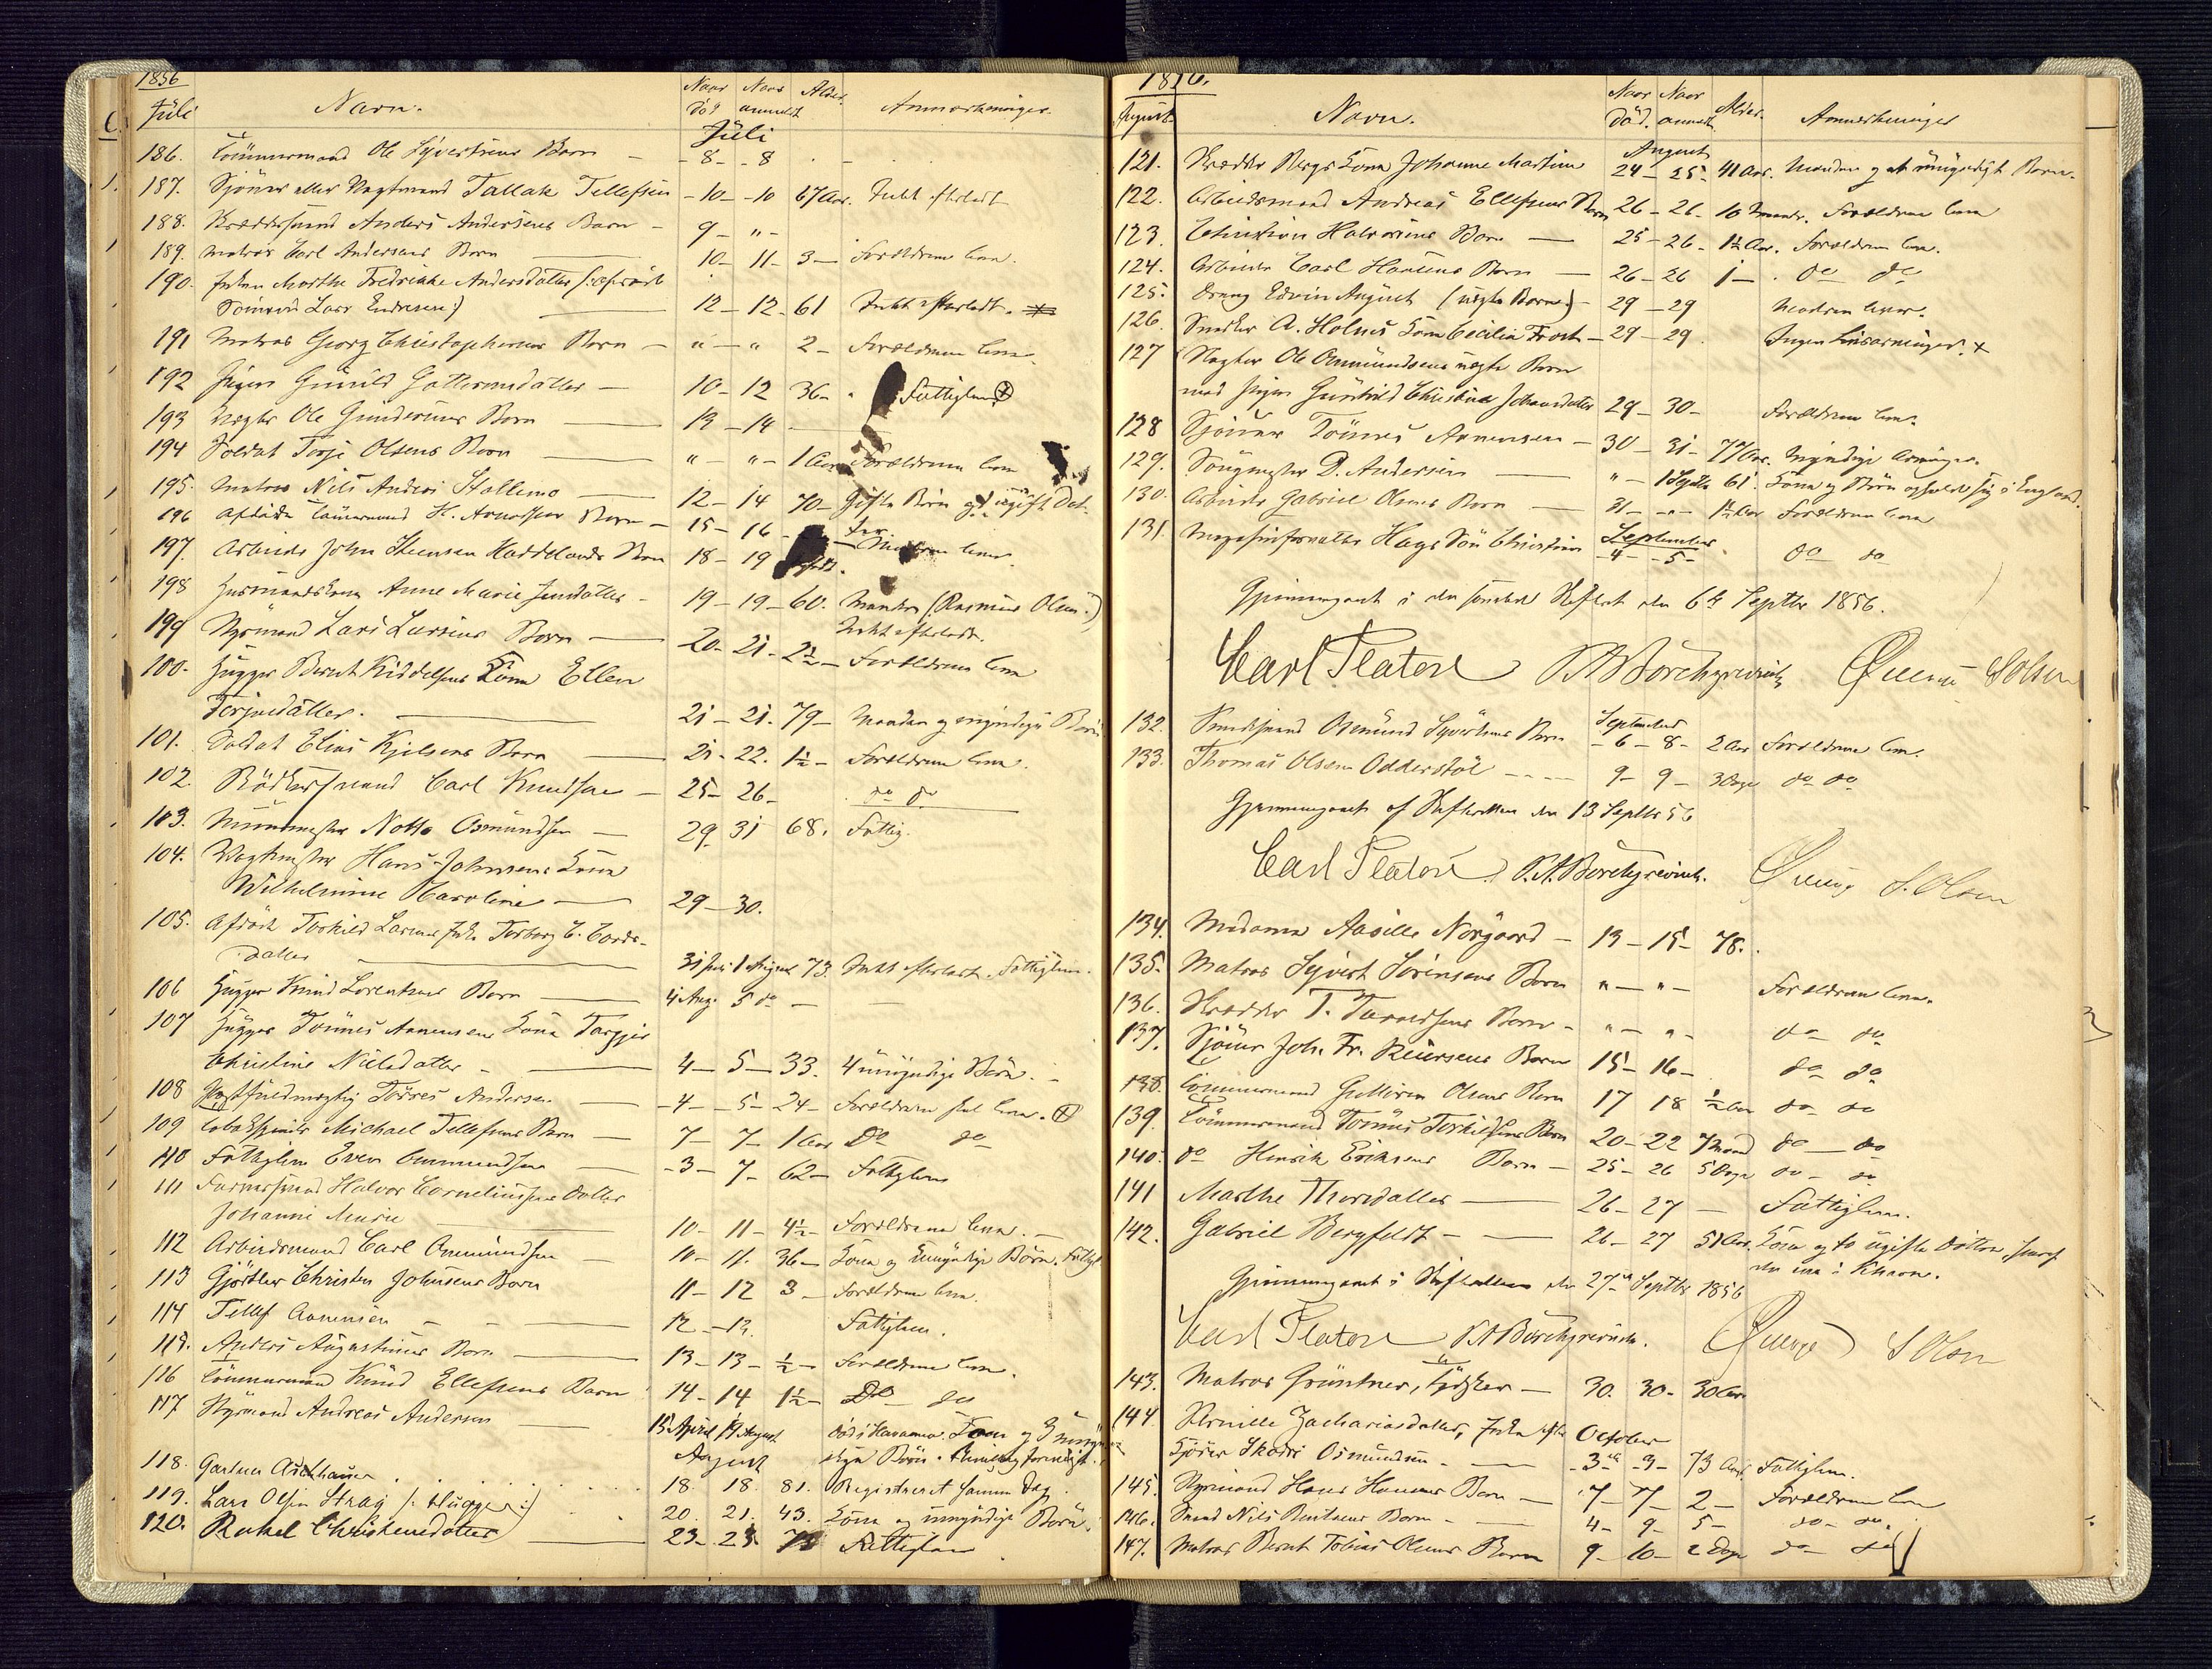 1856
Juli
Navn.
Naar død
Naar anmeldt
Alder.
Anmærkninger.
Juli
186. Tömmermand Ole Syvertsens Barn - 8 - - 8
187. Sjöuer eller Vagtmand Tallak Tellefsen - 10 - - 10 67 Aar. Intet efterladt
188. Anders Andersens Barn - 9 - " -
189. Matros Carl Andersens Barn 10 - 11 - 3 - Forældrene leve.
190. Enken Marthe Fredrikke Andersdatter
Lars Endresen :) 12 - 12 - 61 Intet efterladt.
191 Matros Georg Christophersens Barn - " - " 2 - Forældrene leve
192 Pigen Gunild Guttormsdatter - 10 - 12 36 - Fattiglem
193 Ole Gundersens Barn 13 - 14
194 Soldat Terje Olsens Barn " - " - 1 Aar Forældrene leve
195. Matros Nils Anders Stallemo 12 - 14 70 - Gifte Börn og ugift Dat-
ter
196 Afdöde Tömmermand H. Barn - 15 - 16 Moderen lever.
197. Arbeider John Steensen Haddelands Barn 18 - 19
198 Husmandskone Anne Marie Jensdatter - 19 - 19 - 60. Manden (Rasmus Olsen.)
Intet efterladt.
199 Styrmand Lars Larsens Barn 20 - 21 - 2½ - Forældrene leve
100. Hugger Berent Kiddelsens Kone Ellen
Terjesdatter. 21 - 21. 79 - Manden og myndige Börn
101. Soldat Elias Kjelsens Barn 21 - 22. 1½ - Forældrene leve.
102. Bödkersvend Carl Knudsen - 25 - 26 - do do
103. Muurmester Notto Osmundsen - 29. 31 68. Fattig.
104. Vagtmester Hans Johnsens Kone
Wilhelmine Caroline 29 - 30.
105. Afdöde Torkild Larsens Enke Torborg
datter 31 Juli 1 August 73. Intet efterladt. Fattiglem.
106 Hugger Knud Lorentsens Barn 4 Aug. 5 do -
107 Hugger Tönnes Aanensens Kone Targjer
Christine Nielsdatter - 4 - 5 - 33. 4 umyndige Börn.
108 Postfuldmægtig Törres Andersen - 4 - - 5 - 24 - Forældrene skal leve.
109 Michael Tellefsens Barn - 7 - 7 1 Aar Do do
110 Fattiglem Even Ommundsen - 3 - 7 - 62 - Fattiglem
111 Halvor Corneliussens Datter
Johanne Marie 10 - 11 - 4½ - Forældrene leve.
112 Arbeidsmand Carl Ommundsen 10 - 11. 36 - Kone og umyndige Börn. Fattigl
113 Gjörtler Christen Johnsens Barn 11 - 12 3 - Forældrene leve.
114 Tellef Aanensen 12 - 12. Fattiglem.
115. Anders Augustinus Barn 13 - 13 - ½ - Forældrene leve.
116 Tömmermand Knud Ellefsens Barn 14 - 14 1½ - Do - do
117 Styrmand Andreas Andersen 15 April 14 August död i Havanna. Kone og 3 umyn
August dige Börn.
118. Gartner Aschhauser 18. 18. 81. Registreret samme Dag.
119. Lars Olsen Strag /: Hugger :/ 20. 21. 43. Kone og umyndige Börn.
120. Rakel Christensdatter 23 - 23. 78 Fattiglem
1856.
August
Navn.
Naar Död.
Naar anmeldt
Alder.
Anmærkninger
August
121. Skrædder Bergs Kone Johanne Martine 24 - 25 - 41 Aar. Manden og et umyndigt Barn.
122. Arbeidsmand Andreas Ellefsens Barn 26 - 26 - 10 Forældrene leve
123. Christian Halvorsens Barn 25 - 26 - 1½ Aar. Forældrene leve.
124. Arbeider Carl Hansens Barn 26 - 26 1 - do do
125. Dreng Edvin August (uægte Barn) - 29 - 29 Moderen lever.
126. Snedker A. Holms Kone Cecilia Frost - 29 - 29. Ingen Livsarvinger. +
127 Vægter Ole Ommundsens uægte Barn
med Pigen Gunhild Christine Johansdatter 29 - 30 - Forældrene leve.
128 Sjöuer Tönnes Aanensen - 30 - 31 - 77 Aar. Myndige Arvinger.
129. D. Andersen " - 1 Septbr 61. Kone og Börn opholde sig i England.
130. Arbeider Gabriel Olsens Barn 31 - " - 1½ Aar Forældrene leve
September
131. Magasinforvalter Hays Sön Christian - 4 - - 5 - do do
Gjennemgaaet i den samlede Skifteret den 6te Septbr 1856.
Carl Platou P. A. Borchgrevink S. Olsen
September
132. Osmund Syvertsens Barn - 6 - 8 - 2 Aar Forældrene leve.
133. Thomas Olsen Odderstöl 9 - 9 - 3 Dage do do
Gjennemgaaet af Skifteretten den 13 Septbr 56
Carl Platou P. A. Borchgrevink. S. Olsen
134. Madame Aasille Nörgaard - 13 - 15 - 78.
135. Matros Syvert Sörensens Barn " - " - Forældrene leve.
136. Skrædder T. Barn - " - " - do do
137. Sjöuer Joh. Fr. Barn 15 - 16 - do do
138. Tömmermand Olsens Barn 17 18 ½ Aar do do
139. Tömmermand Tönnes Torkildsens Barn 20 - 22 7 Maand do - do
140. do Hinrik Eriksens Barn - 25 - 26 5 Dage do - do
141 Marthe Thorsdatter 26 - 27 - Fattiglem.
142. Gabriel Bergfeldt 26 - 27 51 Aar. Kone og to ugifte Döttre, hvoraf
den ene i Khavn.
Gjennemgaaet i Skifteretten den 27de Septbr 1856
Carl Platou P. A. Borchgrevink. S. Olsen
143. Matros Grüntner, Tydsker - 30. 30 - 30 Aar
144. Pernille Zachariasdatter, Enke efter October
Sjöuer Osmundsen - 3 - 3 - 73 Aar. Fattiglem.
145. Styrmand Hans Hansens Barn - 7 - 7 - 2 - Forældrene leve
146. Smed Nils Barn - 4 - 9 - 5 - do - do.
147. Matros Bernt Tobias Olsens Barn 9 - 10 - 2 Dage do - do